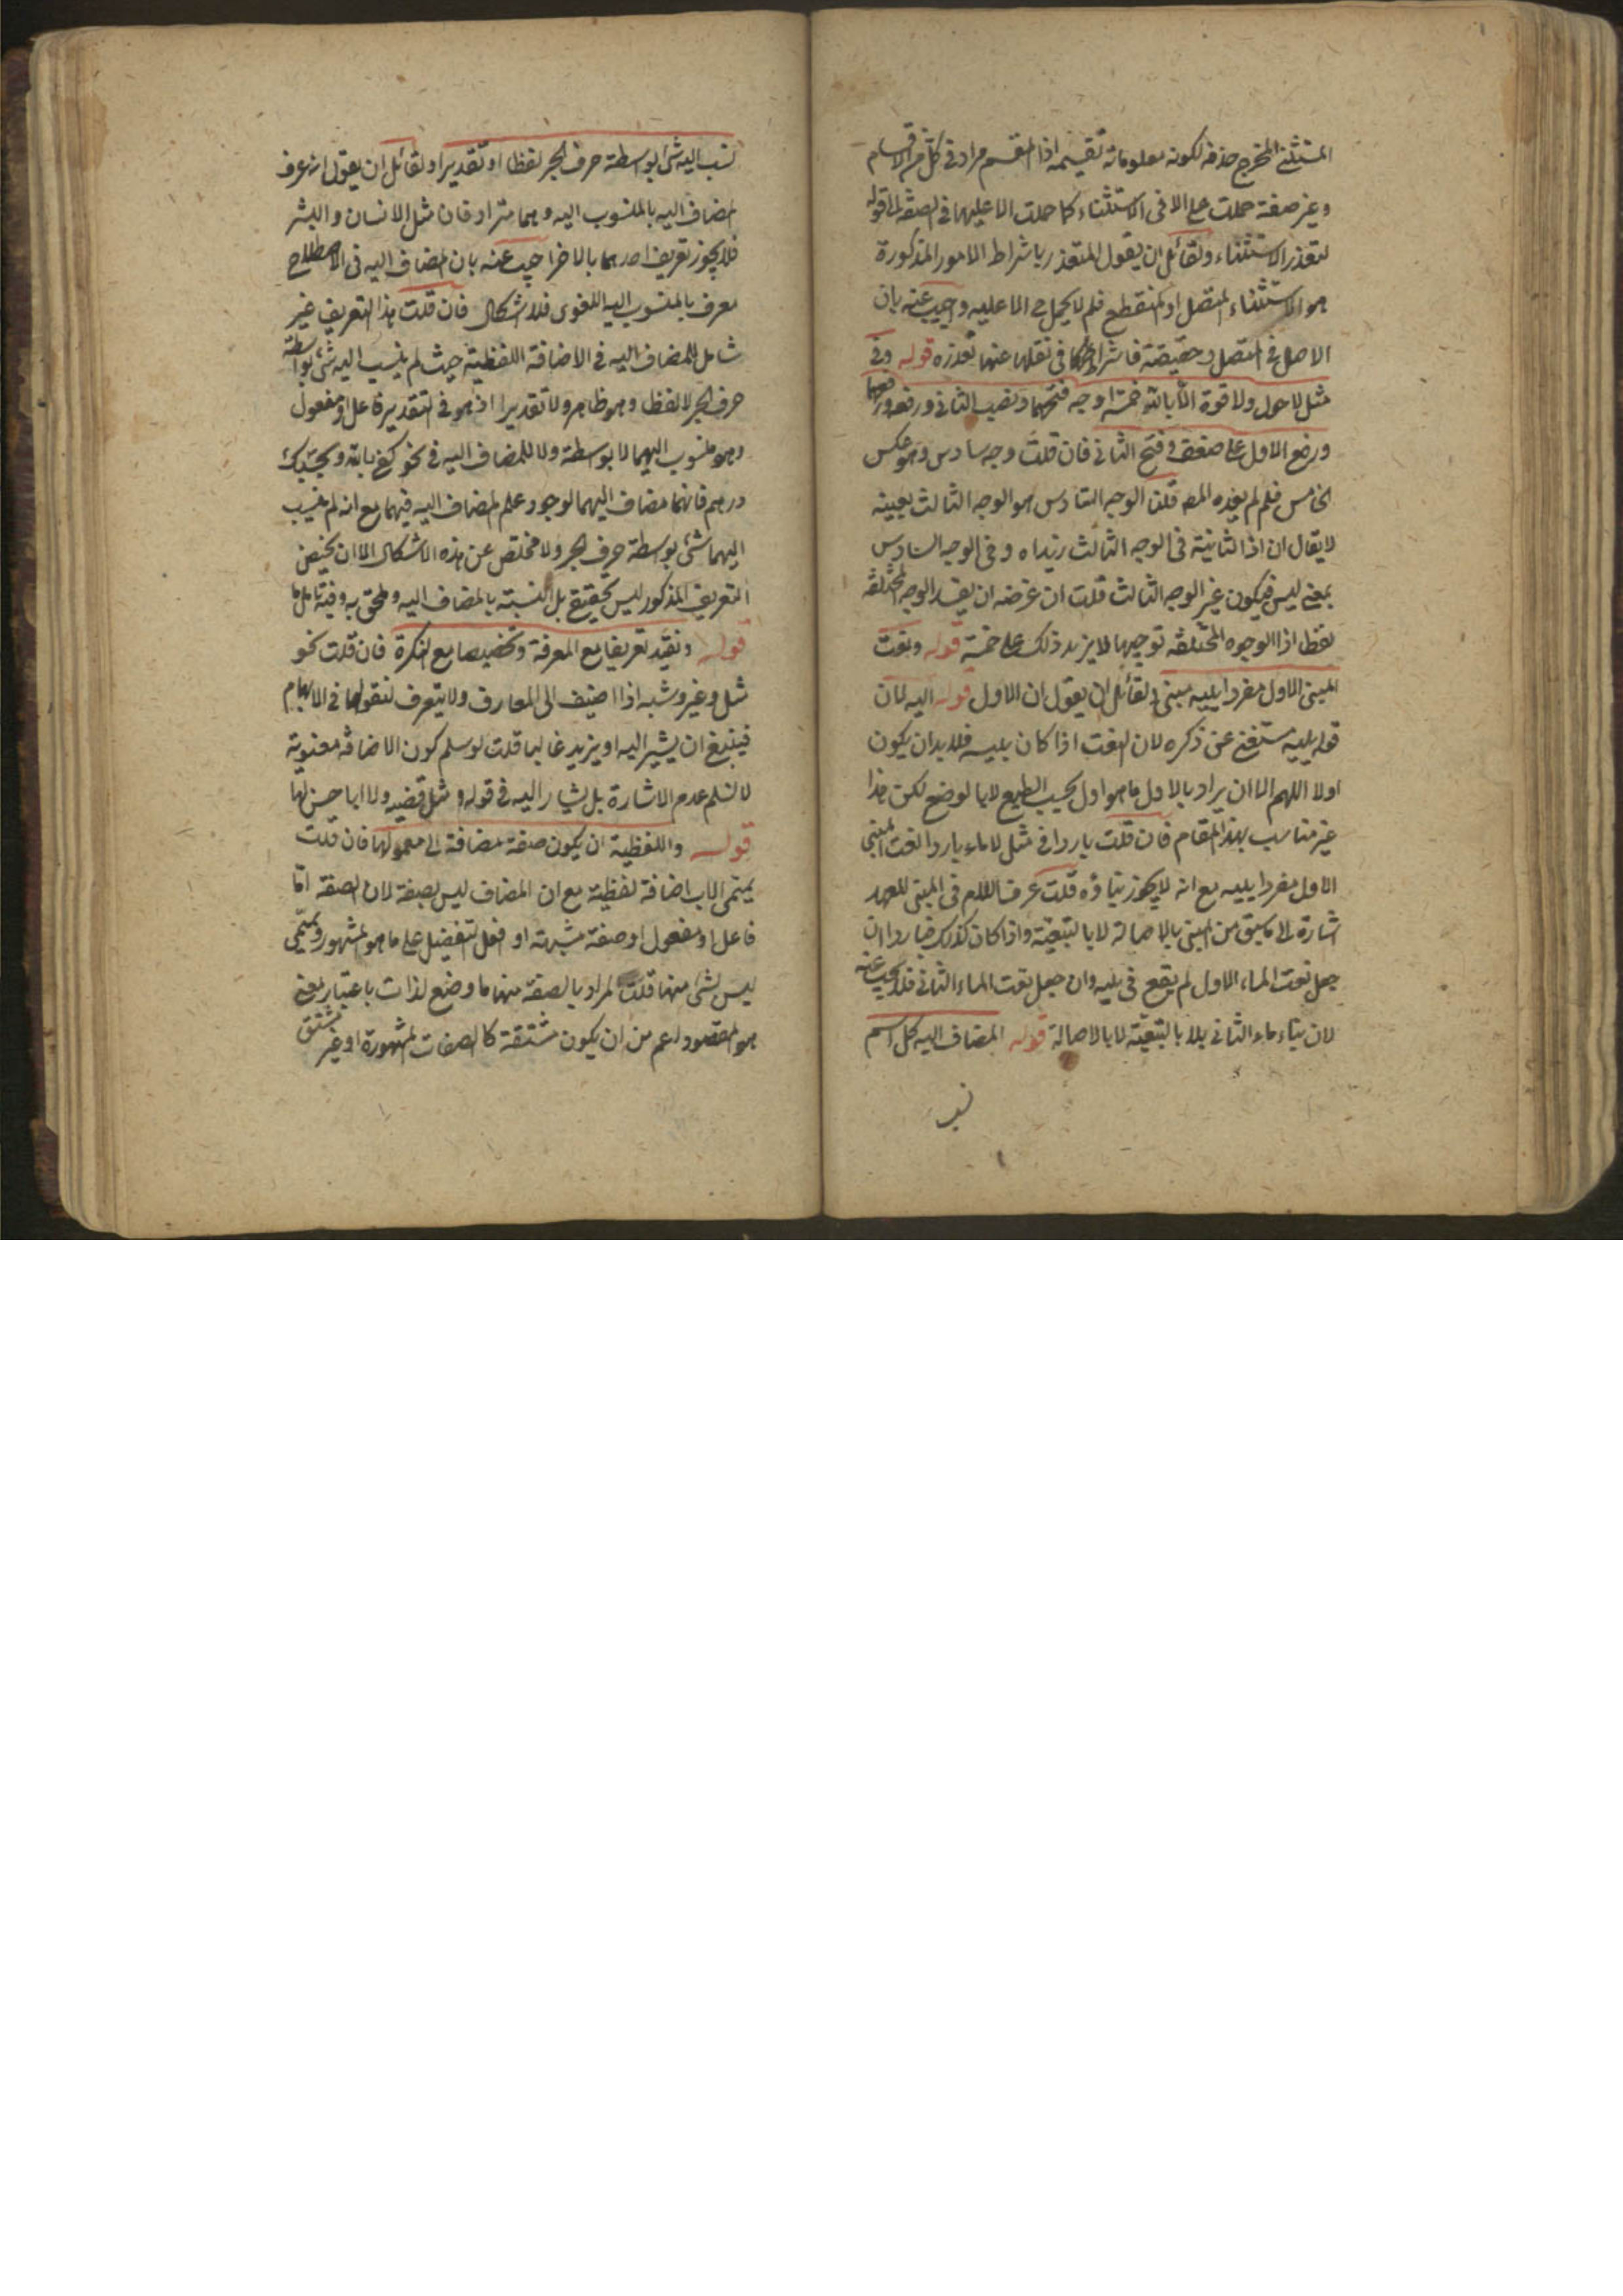 المستثنى المخرج حذفه لكونه معلوما من تقسيمه اذا المقسم مراد في كل من الاقسام
وغير صفة حملت على الا في الاستثناء كما حملت الا عليها في الصفة الى قوله
لتعذر الاستثناء ولقائل ان يقول المتعذر باشتراط الامور المذكورة
هو الاستثناء المتصل او المنقطع فلم لا يحمل الا عليه واجيب عنه بان
الاصل في المتصل وحقيقة فاشتراطها في نقلها عنها تعذره قوله وفي
مثل لا حول ولا قوة الا بالله خمسة اوجه فتحهما ونصب الثاني ورفعه ورفعهما
ورفع الاول على ضعف وفتح الثاني فان قلت وجه سادس وهو عكس
الخامس فلم لم يعده المص قلنا الوجه السادس هو الوجه الثالث بعينه
لا يقال ان اذا لثانية في الوجه الثالث زائدة وفي الوجه السادس
بمعنى ليس فيكون غير الوجه الثالث قلت ان غرضه ان يعد الوجه المختلفة
لفظا اذا الوجوه المختلفة توجيهها لا يزيد ذلك على خمسة قوله ونعت
المبني الاول مفردا يليه مبني ولقائل ان يقول ان الاول قوله اليه لان
قوله يليه مستغنى عن ذكره لان النعت اذا كان يليه فلا بد ان يكون
اولا اللهم الا ان يراد بالاول ما هو اول بحسب الطبع لا بالوضع لكن هذا
غير مناسب بهذا المقام فان قلت باردا في مثل لا ماء باردا نعت المبني
الاول مفردا يليه مع انه لا يجوز بناؤه قلت عرف اللام في المبني للعهد
اشارة الى ما سبق من المبني بالاصالة لا بالتبعية واذا كان كذلك فباردا ان
جعل نعت الماء الاول لم يقع في يليه وان جعل نعت الماء الثاني فلا يجب عنه
لان بناء ماء الثاني بلا بالتبعية لا بالاصالة قوله المضاف اليه كل اسم
نسب
نسب اليه شئ بواسطة حرف الجر لفظا او تقديرا ولقائل ان يقول انه عرف
المضاف اليه بالمنسوب اليه وهما مترادفان مثل الانسان والبشر
فلا يجوز تعريف احدهما بالاخر اجيب عنه بان المضاف اليه في الاصطلاح
معرف بالمنسوب اليه اللغوي فلا اشكال فان قلت هذا التعريف غير
شامل للمضاف اليه في الاضافة اللفظية حيث لم ينسب اليه شئ بواسطة
حرف الجر لا لفظا وهو ظاهر ولا تقديرا اذ هو في التقدير فاعل او مفعول
وهو منسوب اليهما لا بواسطة ولا للمضاف اليه في نحو كفى بالله وبحسبك
درهم فانهما مضاف اليهما لوجود علم المضاف اليه فيهما مع انه لم ينسب
اليهما شئ بواسطة حرف الجر ولا مخلص عن هذه الاشكال الا ان يختص
التعريف المذكور ليس بحقيقي بل النسبة بالمضاف اليه وملحق به وفيه تامل ما
قوله ونفيد تعريفا مع المعرفة وتخصيصا مع النكرة فان قلت نحو
مثل وغير وشبه اذا اضيف الى المعارف ولا يتعرف لتوغلها في الابهام
فينبغي ان يشير اليه او يزيد غالبا قلت لو سلم كون الاضافة معنوية
لا نسلم عدم الاشارة بل يشار اليه في قوله و مثل قضيه ولا ابا حسن لها
قوله واللفظية ان يكون صفة مضافة الى معمولها فان قلت
يمتمى الاب اضافة لفظية مع ان المضاف ليس بصفة لان الصفة اما
فاعل او مفعول او صفة مشبهة او افعل لتفضيل على ما هو المشهور ويتمى
ليس بشئ منها قلت المراد بالصفة منها ما وضع لذات باعتبار معنى
هو المقصود اعم من ان يكون مشتقة كالصفات المشهورة او غير مشتق